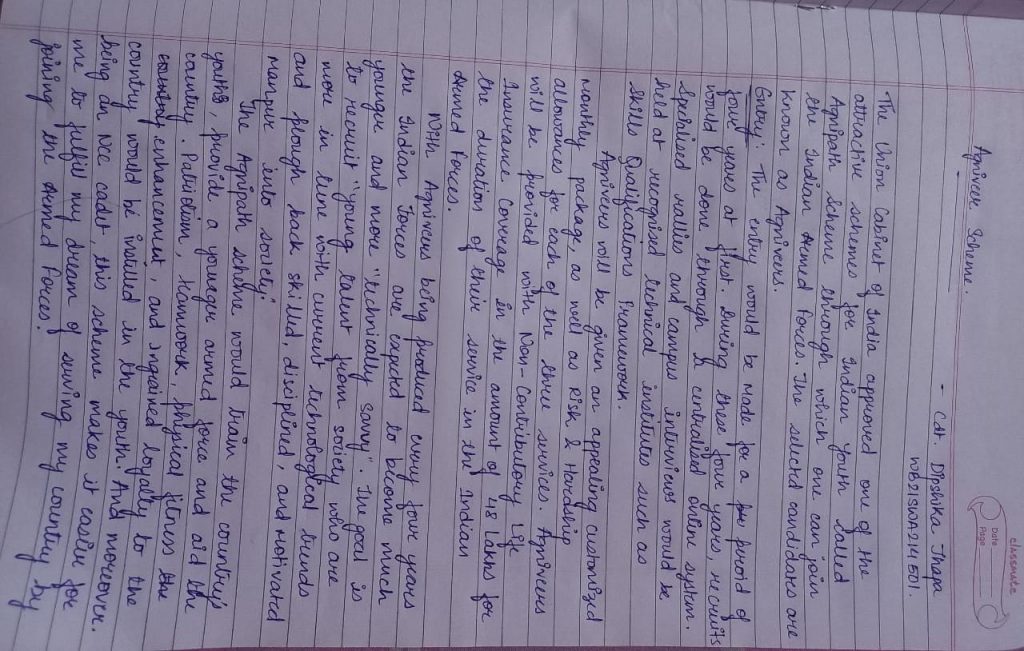 classmate
Date
Page
Agniveer Scheme.
- Cdt. Dipshika Thapa
WB21SWA214501.
The Union Cabinet of India approved one of the
attractive schemes for Indian youth called
Agnipath Scheme through which one can join
the Indian Armed Forces. The selected candidates are
known as Agniveers.
Entry: The entry would be made for a peroid of
four years at first. During these four years, recruits
would be done through a centralised online system.
Specialised rallies and campus interviews would be
held at recognised technical institutes such as
Skills Qualifications Frameework.
Agniveers will be given an appealing customized
monthly package, as well as Risk & Hardship
allowances for each of the three services. Agniveers
will be provided with Non-Contributory Life
Insurance Coverage in the amount of 48 Lakhs for
the duration of their service in the Indian
Armed Forces.
With Agniveers being produced every four years
the Indian Forces are expected to become much
younger and more "technically savvy". The goal is
to recruit "young talent from society who are
more in tune with current technological trends
and plough back skilled, disciplined, and motivated
manpower into society."
The Agnipath scheme would train the country's
youths, provide a younger armed force and aid the
country. Patriotism, teamwork, physical fitness
enhancement, and ingrained loyalty to the
country would be instilled in the youth. And moreover.
being an Ncc cadet, this scheme makes it easier for
me to fulfill my dream of serving my country by
joining the Armed Forces.